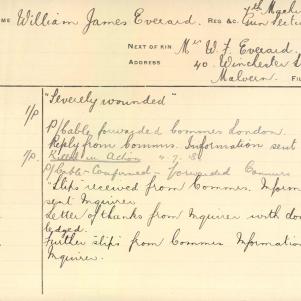 ME William James Everard. REG &C. 7th Mach
Gun Section
NEXT OF KIN Mr W. J. Everard.
ADDRESS 40. Winchester S
Malvern. FI
"Severely wounded"
1/P P/Cable forwarded Commrs London.
Reply from Comms. Information sent
1/P. Killed in Action 4.7.18
P/Cable-Confirmed - forwarded Commrs
"Slips" received from Commrs. Inform
sent Inquirer
Letter of thanks from Inquirer with don
ledged.
Further slips from Commrs Information
Inquirer.